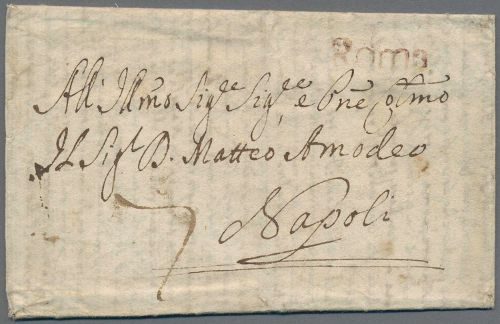 Roma
All' Illmo Sigre Sigre e Pne Colmo
Il Sigr D. Matteo Amodeo
Napoli
7